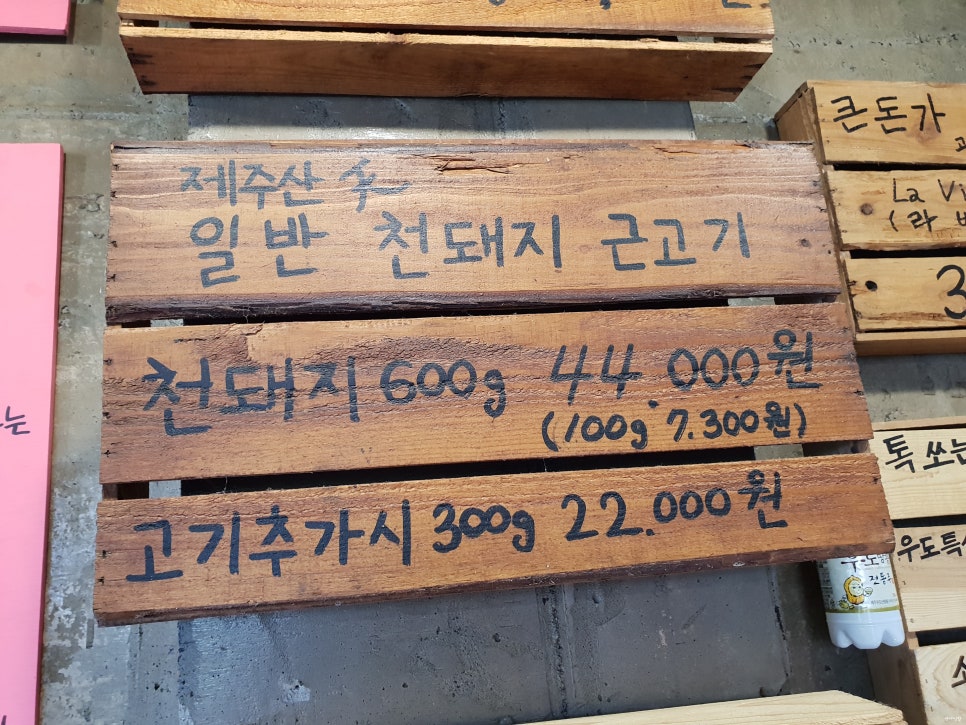 제주산
일반 천돼지 근고기
천돼지 600g 44 000원
(100g 7.300원)
고기추가시 300g 22.000원
큰돈가
La Vi
(라 비
3
톡 쏘는
우도특산
우도
는